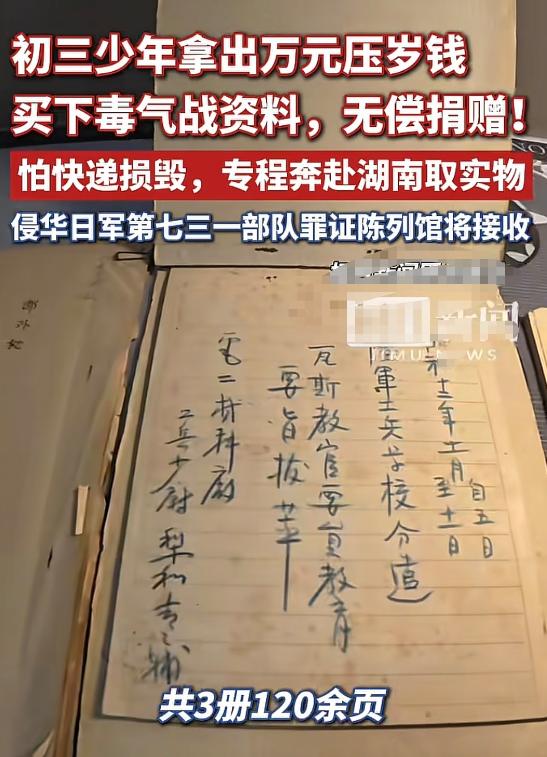 初三少年拿出万元压岁钱
买下毒气战资料，无偿捐赠！
怕快递损毁，专程奔赴湖南取实物
侵华日军第七三一部队罪证陈列馆将接收
新闻
JIMU NEWS
和十二年十一月自五日
至十一日
軍工兵学校分遣
瓦斯教官要員教育
要旨抜萃
電二材料廠
工兵少尉
共3册120余页